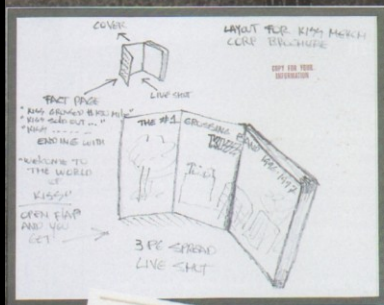 COVER
LAYOUT FOR KISS MERCH
CORP BROCHURE
COPY FOR YOUR
INFORMATION
FACT PAGE
LIVE SHOT
"KISS GROSSED
"KISS SOLD OUT..."
"KISS ......
ENDING WITH
"WELCOME TO
THE WORLD
OF
KISS"
OPEN FLAP
AND YOU
GET
THE #1 GROSSING BAND 1996-1997
3 PG SPREAD
LIVE SHOT